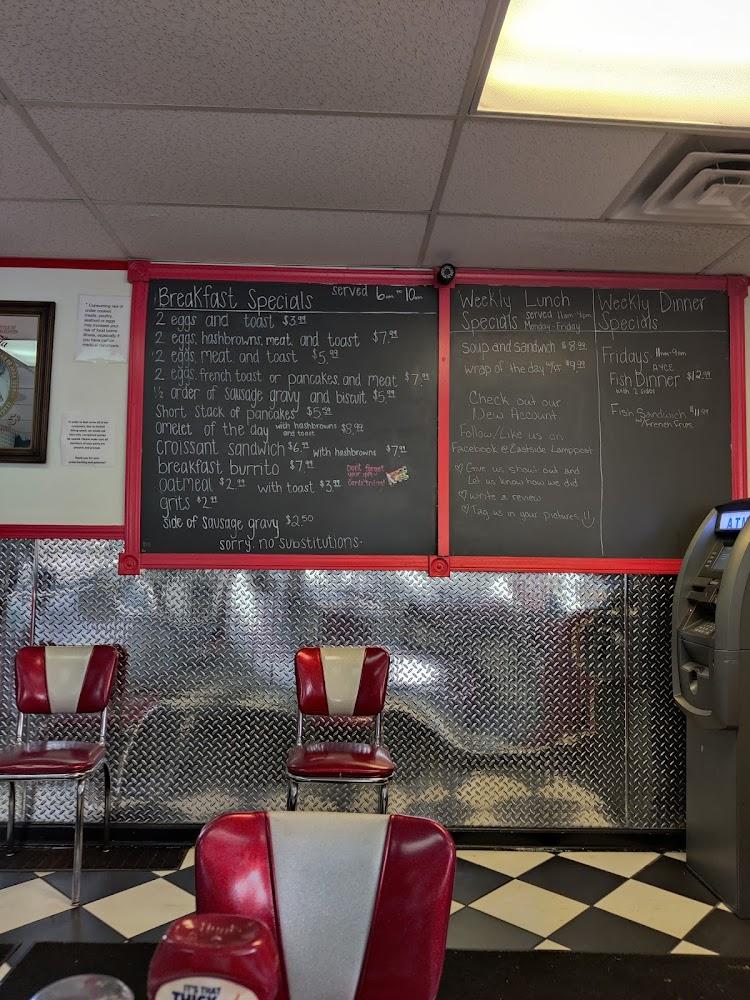 Breakfast Specials served 6am to 10am
2 eggs and toast $3.99
2 eggs, hashbrowns, meat, and toast $7.99
2 eggs, meat, and toast $5.99
2 eggs, french toast or pancakes, and meat $7.99
1/2 order of sausage gravy and biscuit, $5.99
short stack of pancakes $5.50
omelet of the day with hashbrowns and toast $8.99
croissant sandwich $6.99 with hashbrowns $7.99
breakfast burrito $7.99
Don't forget
your gift
Cards today!
oatmeal $2.99 with toast $3.99
grits $2.99
side of sausage gravy $2.50
sorry, no substitutions.
Weekly Lunch
Specials served 11am-4pm
Monday-Friday
soup and sandwich $8.99
wrap of the day w/FF $9.99
Check out our
New Account
Follow/Like us on
Facebook @ Eastside Lamppost
♡ Give us shout out and
Let us know how we did
♡ Write a review
♡ Tag us in your pictures
Weekly Dinner
Specials
Fridays 11am-9pm
AYCE
Fish Dinner $12.99
with 2 sides
Fish Sandwich $11.99
w/French Fries
* Consuming raw or
under cooked
meats, poultry,
seafood or eggs
may increase your
risk of food borne
illness, especially if
you have certain
medical conditions.
ATM
IT'S THAT
THICK